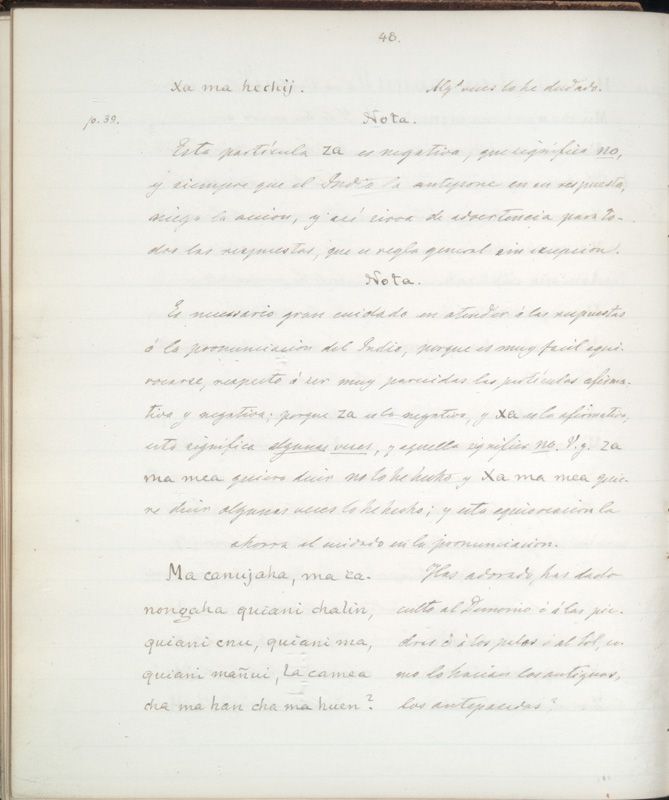 48.
Xa ma hechij. Alg.s veces lo he dudado.
p. 39. Nota.
Esta partícula za es negativa, que significa no,
y siempre que el Indio la antepone en su respuesta,
niega la accion, y así sirva de advertencia para to-
das las respuestas, que es regla general sin excepcion.
Nota.
Es necessario gran cuidado en atender á las respuestas
ó la pronunciacion del Indio, porque es muy facil equi-
vocarse, respecto á ser muy parecidas las partículas afirma-
tiva y negativa; porque za es la negativa, y xa es la afirmativa,
esta significa algunas veces, y aquella significa no. V. g. za
ma mea quiere decir no lo he hecho y xa ma mea quie-
re decir algunas veces lo he hecho; y esta equivocacion la
ahorra el cuidado en la pronunciacion.
Ma canujaha, ma za- Has adorado, has dado
nongaha quiani chalin, culto al Demonio ó á las pie-
quiani cnu, quiani ma, dras ó á los palos ó al Sol, co-
quiani mañui, la camea mo lo hacian los antiguos,
cha ma han cha ma huen? los antepasados?